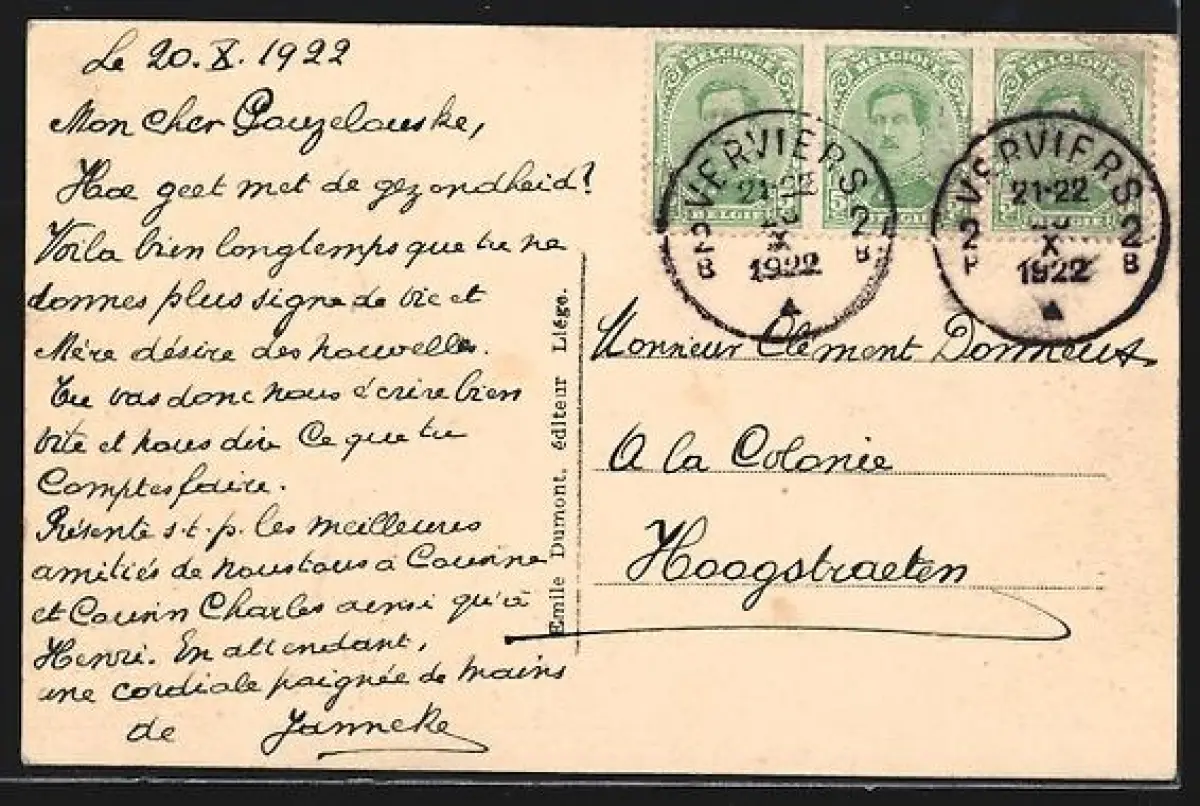 Le 20.X.1922
Mon cher Pouzelouske,
Hoe geet met de gezondheid?
Voila bien longtemps que tu ne
donnes plus signe de vie et
Mère désire des nouvelles.
Tu vas donc nous écrire bien
vite et nous dire ce que tu
Comptes faire.
Présente s.t.p. les meilleures
amitiés de nous tous à Cousine
et Cousin Charles ainsi qu'à
Henri. En attendant,
une cordiale poignée de mains
de Janneke
Emile Dumont, éditeur Liége.
BELGIQUE BELGIQUE BELGIQUE
BELGIË BELGIË BELGIË
VERVIERS 2
21-22
X
1922
2 B
VERVIERS 2
21-22
X
1922
2 B
Monsieur Clément Donneux
A la Colonie
Hoogstraeten